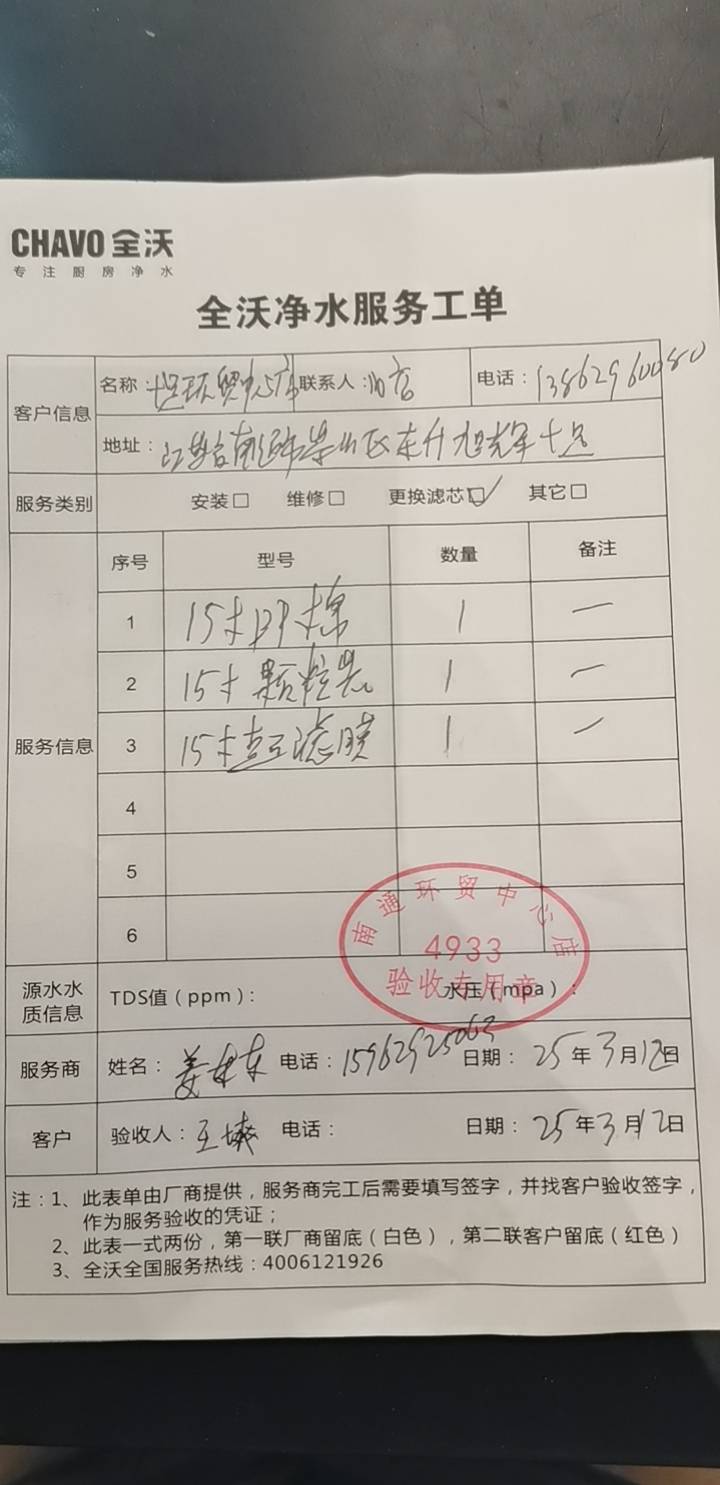 CHAVO 全沃
专注厨房净水
全沃净水服务工单
客户信息
名称：环贸中心店 联系人： 店 电话：13862960080
地址：江苏省南通市崇川区东升
服务类别 安装□ 维修□ 更换滤芯☑ 其它□
服务信息
序号 型号 数量 备注
1 15寸PP棉 1 一
2 15寸颗粒炭 1 一
3 15寸超滤膜 1 一
4
5
6
南通环贸中心店
4933
验收专用章
源水水质信息 TDS值（ppm）： 水压（mpa）：
服务商 姓名：姜 东 电话：15962925063 日期：25年3月12日
客户 验收人：王 电话： 日期：25年3月12日
注：1、此表单由厂商提供，服务商完工后需要填写签字，并找客户验收签字，
作为服务验收的凭证；
2、此表一式两份，第一联厂商留底（白色），第二联客户留底（红色）
3、全沃全国服务热线：4006121926